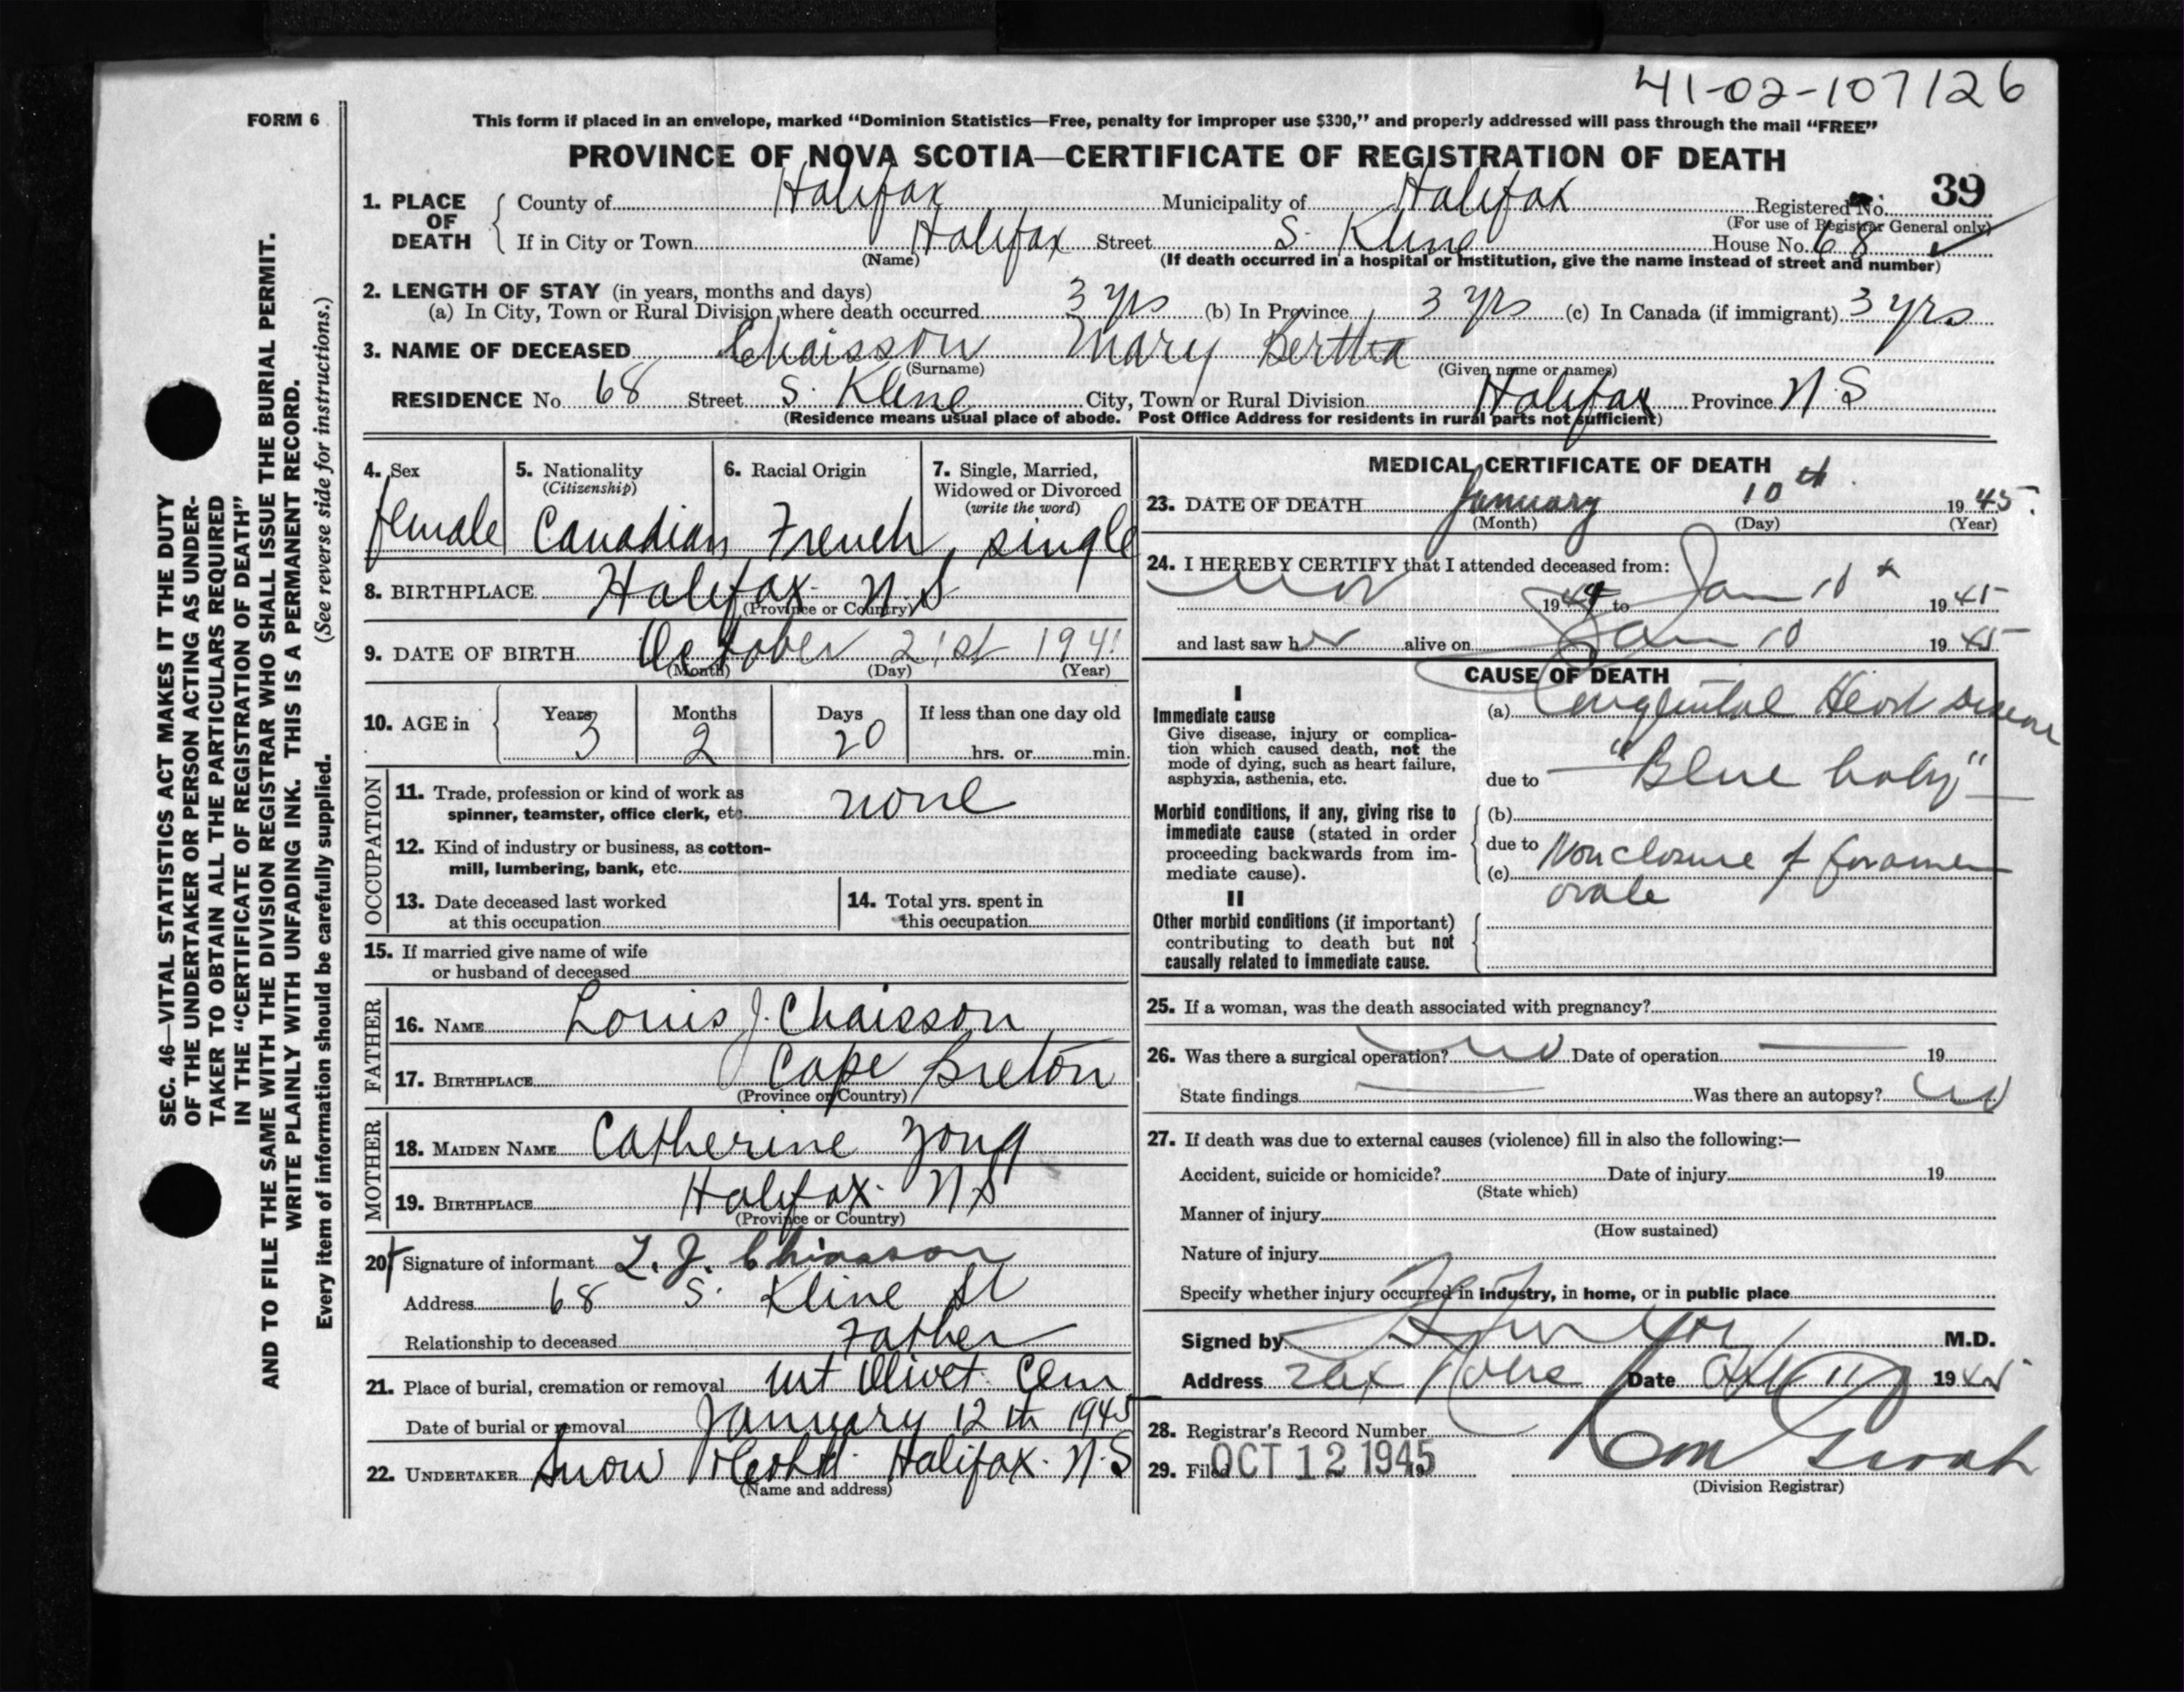 41-02-107126
FORM 6
This form if placed in an envelope, marked “Dominion Statistics—Free, penalty for improper use $300,” and properly addressed will pass through the mail “FREE”
PROVINCE OF NOVA SCOTIA—CERTIFICATE OF REGISTRATION OF DEATH
SEC. 46—VITAL STATISTICS ACT MAKES IT THE DUTY
OF THE UNDERTAKER OR PERSON ACTING AS UNDER-
TAKER TO OBTAIN ALL THE PARTICULARS REQUIRED
IN THE “CERTIFICATE OF REGISTRATION OF DEATH”
AND TO FILE THE SAME WITH THE DIVISION REGISTRAR WHO SHALL ISSUE THE BURIAL PERMIT.
WRITE PLAINLY WITH UNFADING INK. THIS IS A PERMANENT RECORD.
Every item of information should be carefully supplied. (See reverse side for instructions.)
1. PLACE OF DEATH
County of Halifax Municipality of Halifax Registered No. 39
(For use of Registrar General only)
If in City or Town Halifax Street S. Kline House No. 68
(Name) (If death occurred in a hospital or institution, give the name instead of street and number)
2. LENGTH OF STAY (in years, months and days)
(a) In City, Town or Rural Division where death occurred 3 yrs (b) In Province 3 yrs (c) In Canada (if immigrant) 3 yrs
3. NAME OF DECEASED Chaisson Mary Bertha
(Surname) (Given name or names)
RESIDENCE No. 68 Street S. Kline City, Town or Rural Division Halifax Province N.S
(Residence means usual place of abode. Post Office Address for residents in rural parts not sufficient)
4. Sex 5. Nationality 6. Racial Origin 7. Single, Married,
(Citizenship) Widowed or Divorced
(write the word)
female Canadian French single
8. BIRTHPLACE Halifax N.S
(Province or Country)
9. DATE OF BIRTH October 21st 1941
(Month) (Day) (Year)
10. AGE in Years Months Days If less than one day old
3 2 20 hrs. or min.
OCCUPATION
11. Trade, profession or kind of work as
spinner, teamster, office clerk, etc. none
12. Kind of industry or business, as cotton-
mill, lumbering, bank, etc.
13. Date deceased last worked 14. Total yrs. spent in
at this occupation this occupation
15. If married give name of wife
or husband of deceased
FATHER
16. NAME Louis J. Chaisson
17. BIRTHPLACE Cape Breton
(Province or Country)
MOTHER
18. MAIDEN NAME Catherine Yong
19. BIRTHPLACE Halifax N S
(Province or Country)
20. Signature of informant L. J. Chiasson
Address 68 S. Kline St
Relationship to deceased Father
21. Place of burial, cremation or removal Mt Olivet Cem
Date of burial or removal January 12 th 1945
22. UNDERTAKER Snow Halifax. N.S
(Name and address)
MEDICAL CERTIFICATE OF DEATH
23. DATE OF DEATH January 10th 1945.
(Month) (Day) (Year)
24. I HEREBY CERTIFY that I attended deceased from:
Nov 1944 to Jan 10th 1945
and last saw her alive on Jan 10 1945
CAUSE OF DEATH
I
Immediate cause
Give disease, injury or complica-
tion which caused death, not the
mode of dying, such as heart failure,
asphyxia, asthenia, etc.
(a) Congenital Heart Disease
due to “Blue baby”
Morbid conditions, if any, giving rise to
immediate cause (stated in order
proceeding backwards from im-
mediate cause).
(b)
due to Nonclosure of foramen
(c) ovale
II
Other morbid conditions (if important)
contributing to death but not
causally related to immediate cause.
25. If a woman, was the death associated with pregnancy?
26. Was there a surgical operation? no Date of operation — 19
State findings — Was there an autopsy? no
27. If death was due to external causes (violence) fill in also the following:—
Accident, suicide or homicide? Date of injury 19
(State which)
Manner of injury
(How sustained)
Nature of injury
Specify whether injury occurred in industry, in home, or in public place
Signed by M.D.
Address Date Oct 11 1945
28. Registrar's Record Number
29. Filed OCT 12 1945
(Division Registrar)